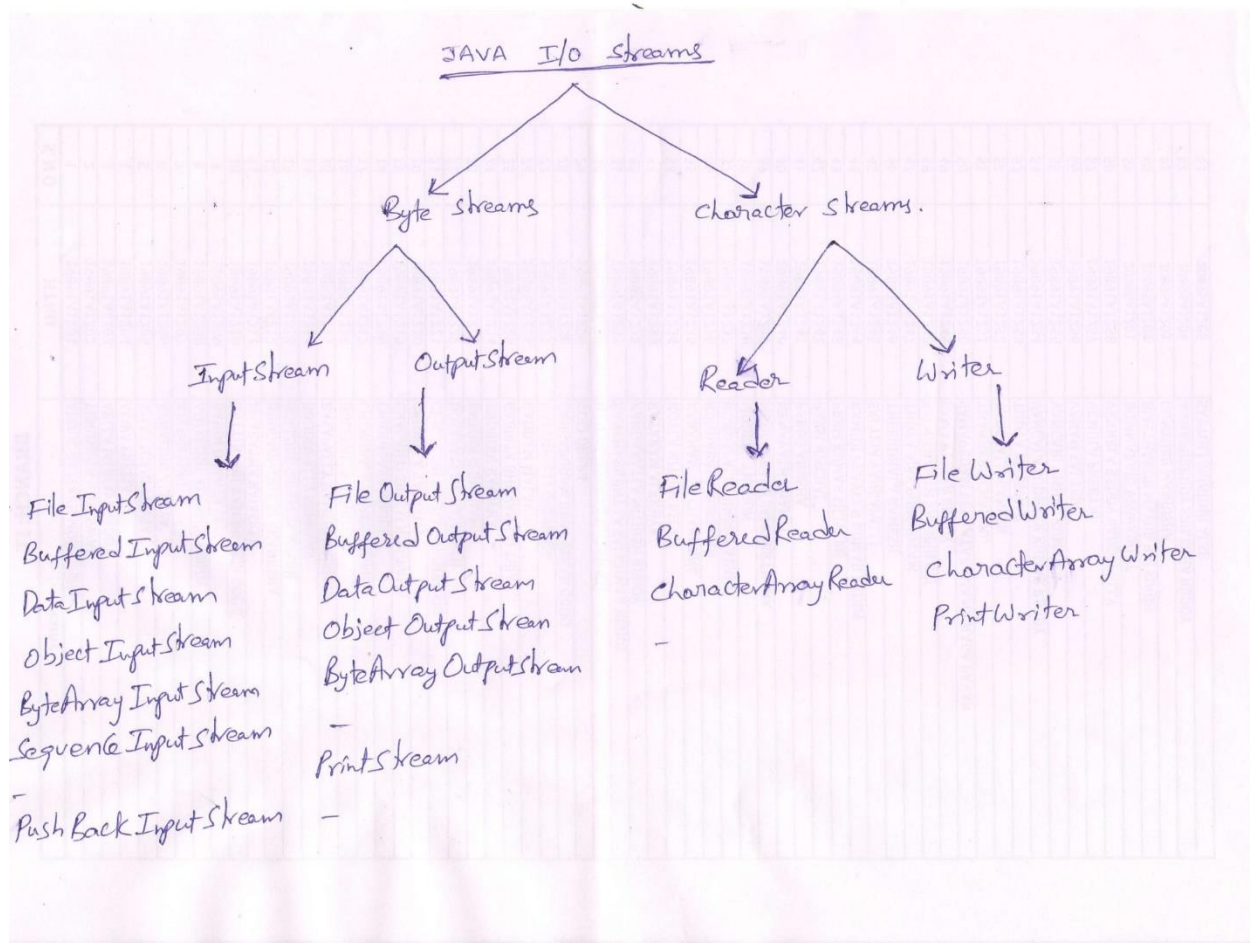 JAVA I/O Streams
Byte Streams
Character Streams.
InputStream
OutputStream
Reader
Writer
File InputStream
Buffered InputStream
Data InputStream
Object InputStream
ByteArray InputStream
Sequence InputStream
-
Push Back InputStream
File Output Stream
Buffered Output Stream
Data Output Stream
Object Output Stream
ByteArray OutputStream
-
PrintStream
-
FileReader
BufferedReader
CharacterArrayReader
-
File Writer
BufferedWriter
CharacterArray Writer
PrintWriter